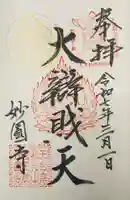 奉拝
令和七年三月一日
大辯財天
妙圓寺